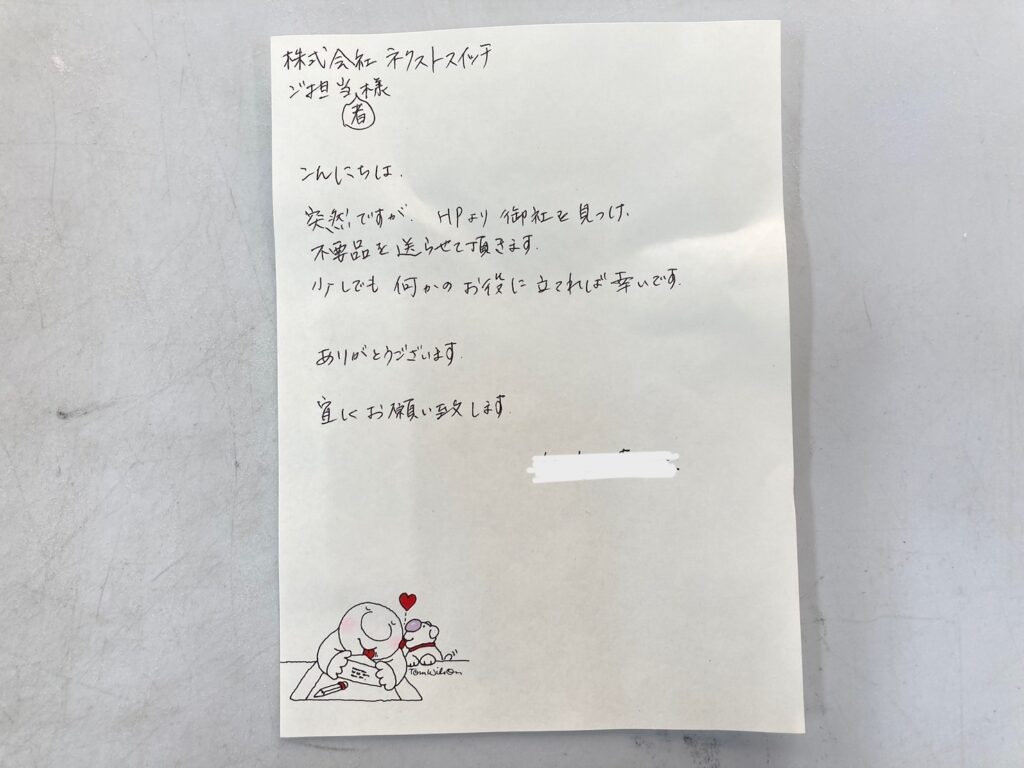 株式会社 ネクストスイッチ
ご担当者様
こんにちは.
突然ですが. HPより 御社を見つけ.
不要品を送らせて頂きます.
少しでも 何かの お役に 立てれば幸いです.
ありがとうございます.
宜しくお願い致します.
Tom Wilson